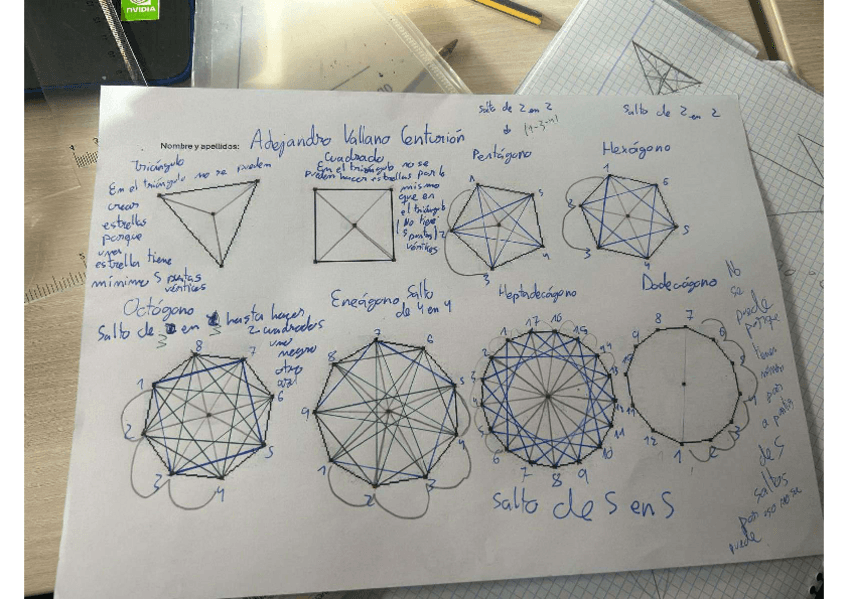 NVIDIA
salto de 2 en 2
Salto de 2 en 2
Nombre y apellidos: Adejandro Vallano Centurión
Triángulo
En el triángulo no se pueden
crear
estrellas
porque
una
estrella tiene
minimo 5 puntas
vértices
Cuadrado
En el triángulo no se
pueden hacer estrellas por lo
mismo
que en
el triángulo
(No tiene
5 puntas)
vértices
Pentágono
1
5
2
4
3
Hexágono
1
6
2
5
3
4
Octógono
Salto de 3 en 3 hasta hacer
2 cuadrados
uno
negro
otro
azul
8
7
1
6
2
5
3
4
Eneágono, Salto
de 4 en 4
7
6
8
5
9
4
1
3
2
Heptadecágono
17
16
1
15
2
14
3
13
4
12
5
11
6
10
7
8
9
Salto de 5 en 5
Dodecágono
8
7
9
6
12
1
2
3
No
se
puede
porque
tienes
número
par
a punta
de 5
saltos
por eso no se
puede